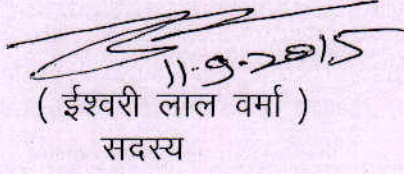 11-9-2015
( ईश्वरी लाल वर्मा )
सदस्य